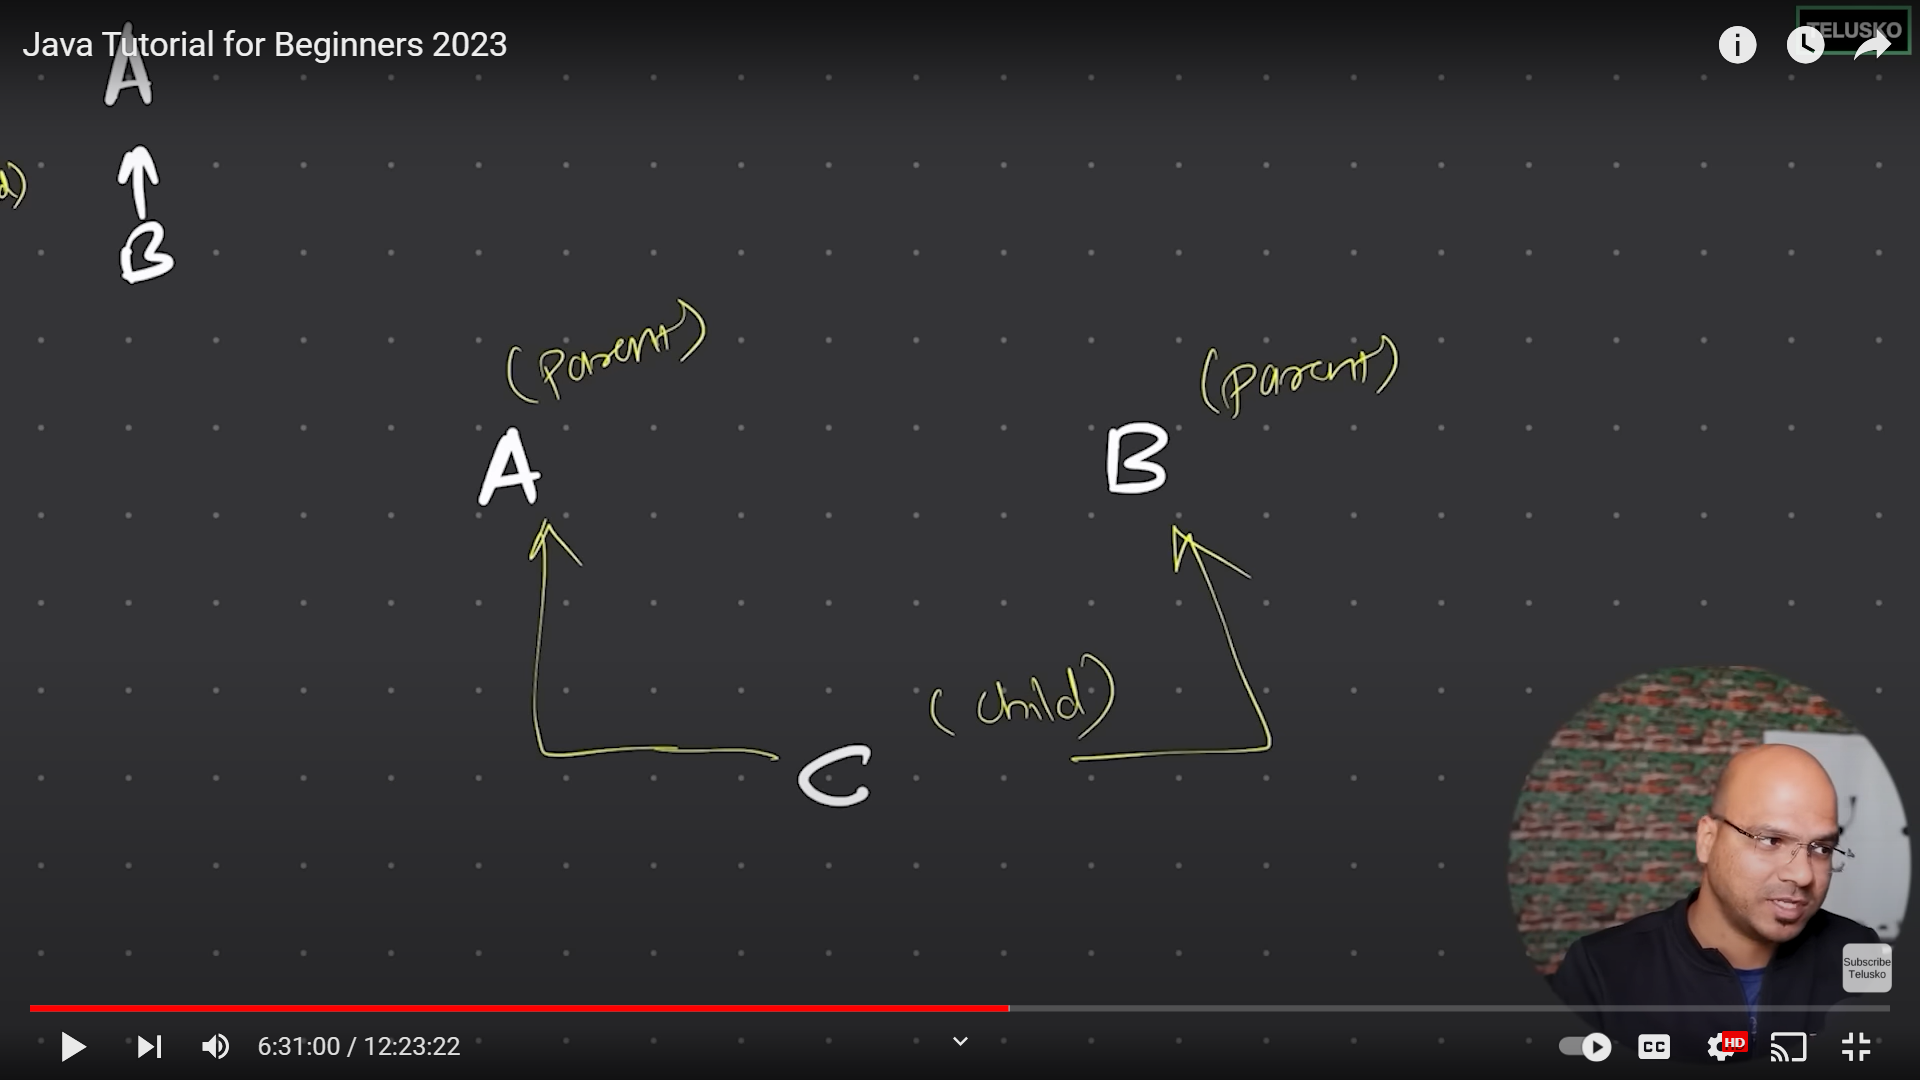 Java Tutorial for Beginners 2023
TELUSKO
A
B
(Parent)
(Parent)
A
B
(Child)
C
Subscribe
Telusko
6:31:00 / 12:23:22
CC
HD